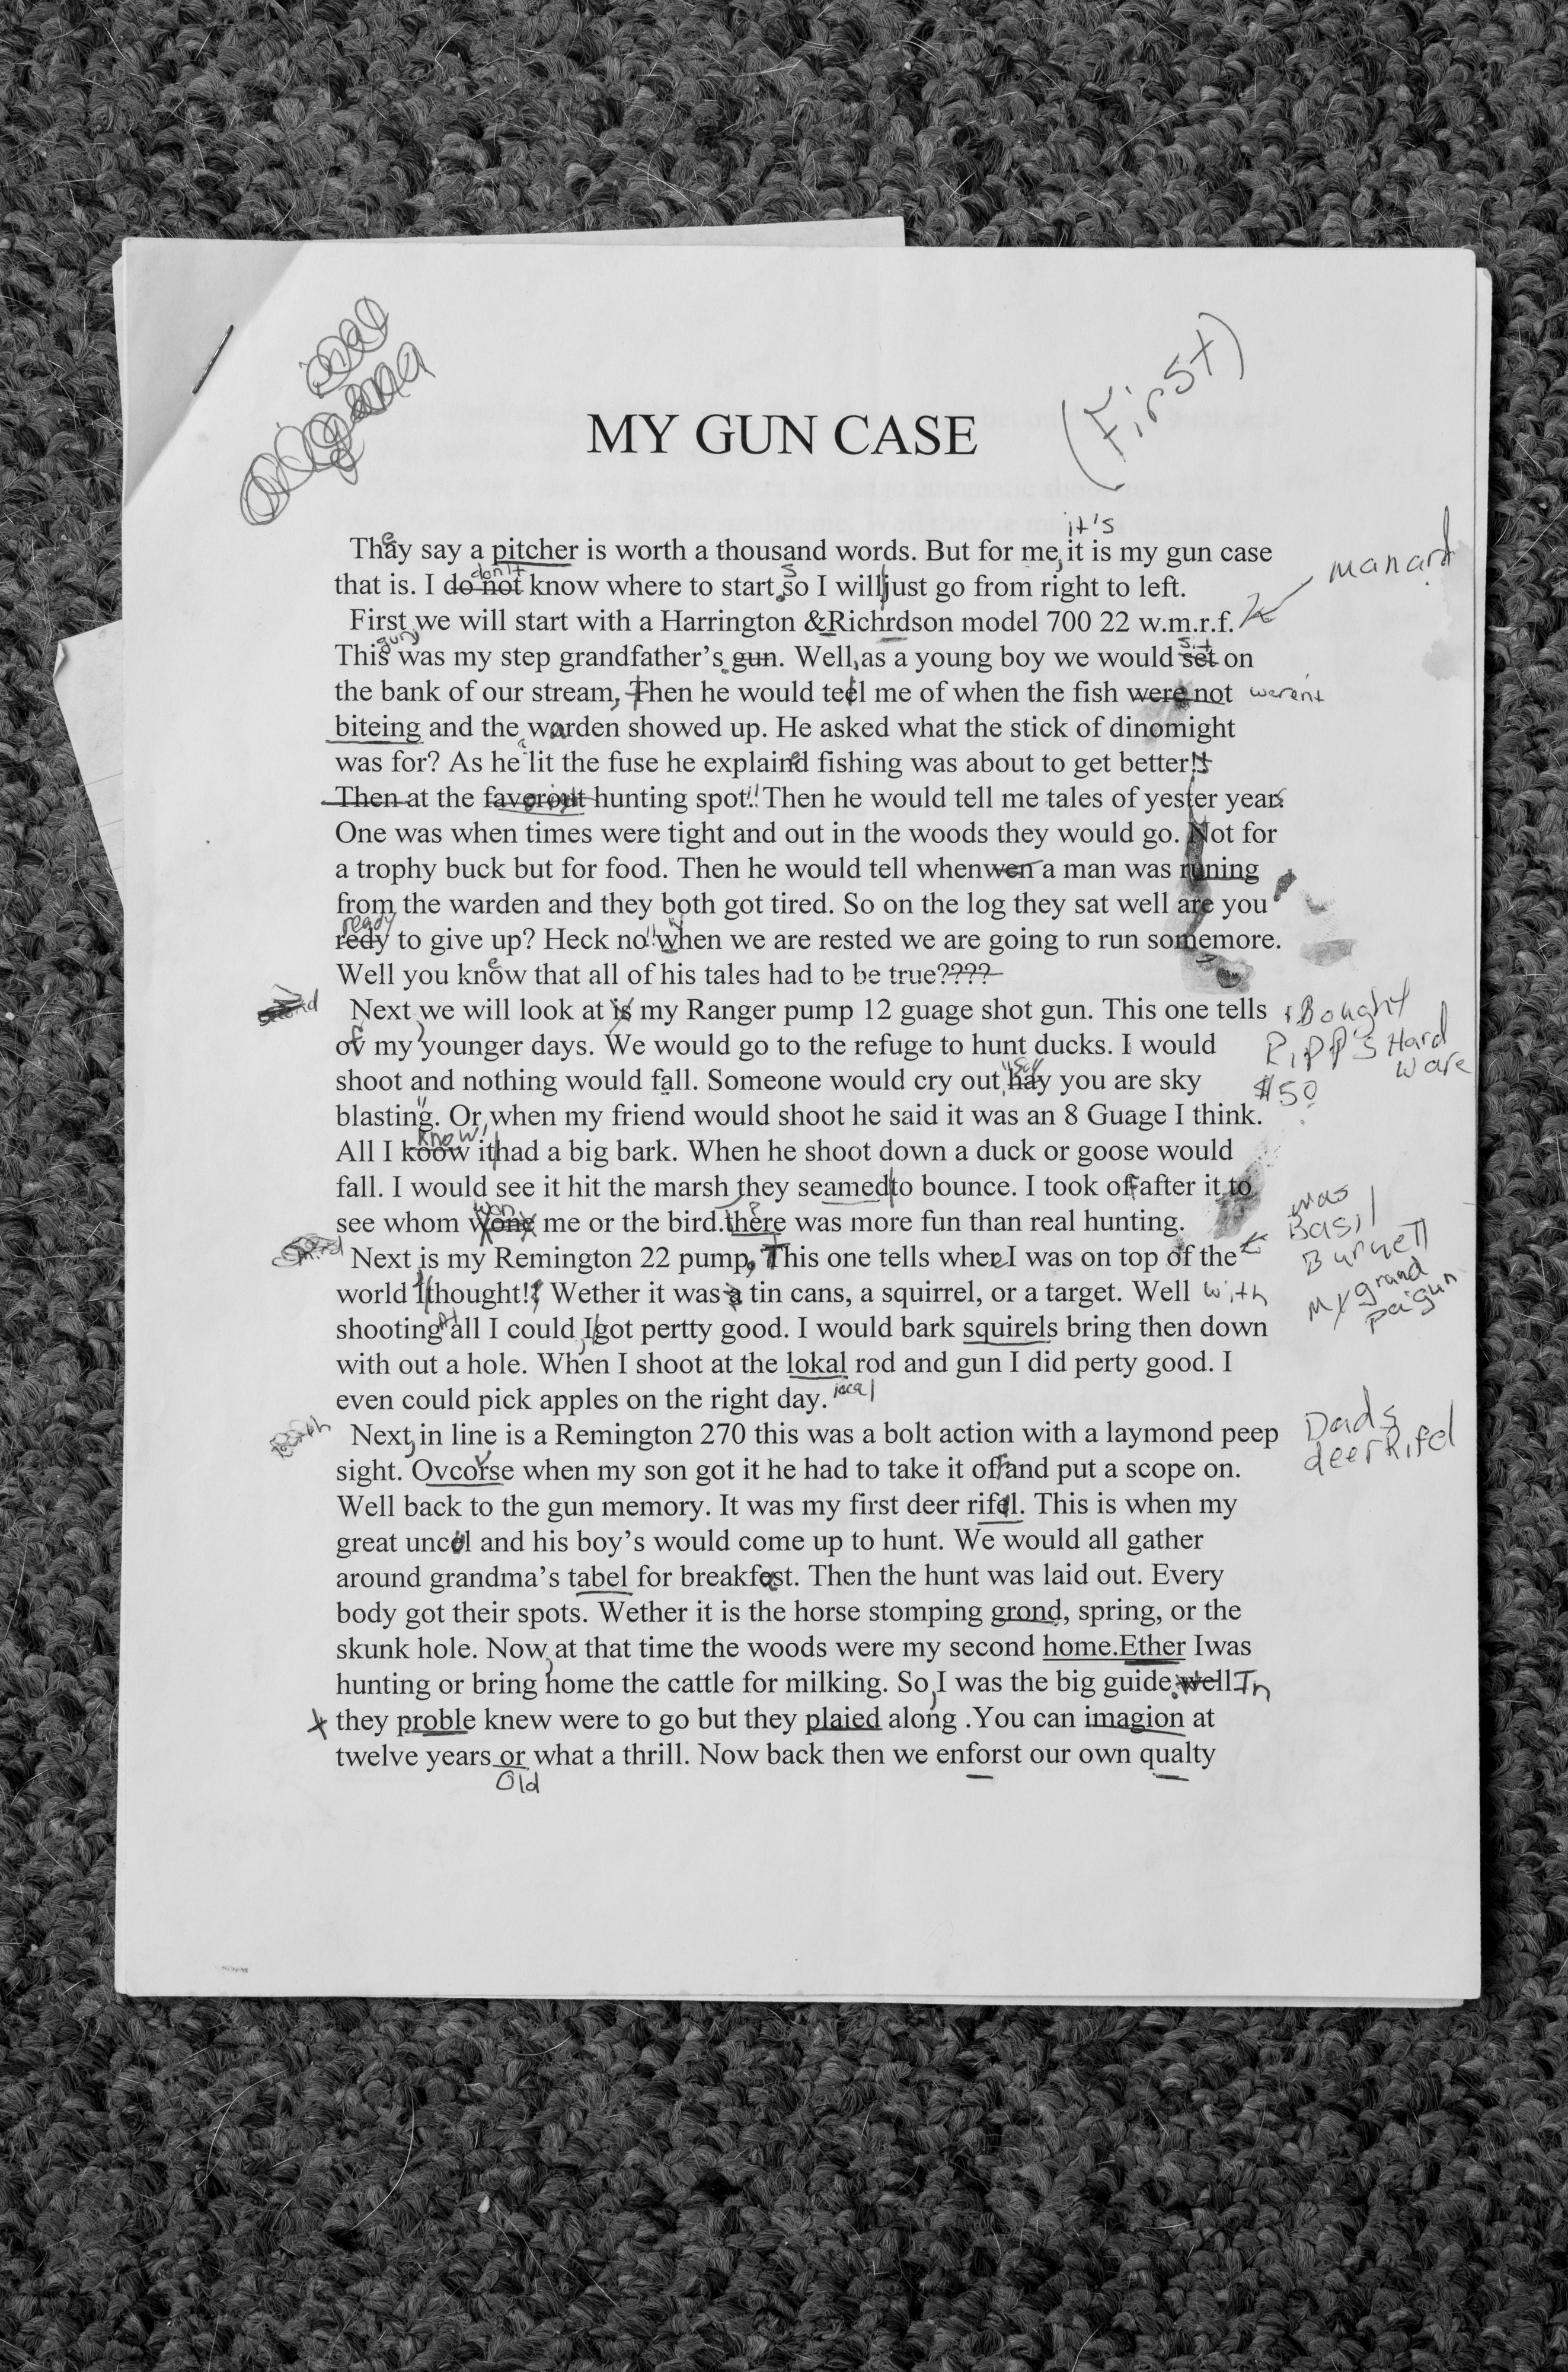 (First)
MY GUN CASE
it's
They say a pitcher is worth a thousand words. But for me, it is my gun case
manard
don't s
that is. I do not know where to start. so I will just go from right to left.
First, we will start with a Harrington &Richrdson model 700 22 w.m.r.f.
gun sit
This was my step grandfather's. gun. Well, as a young boy we would set on
the bank of our stream, Then he would teel me of when the fish were not werent
biteing and the warden showed up. He asked what the stick of dinomight
a
was for? As he lit the fuse he explained fishing was about to get better!!
Then at the favorout hunting spot!! Then he would tell me tales of yester years
One was when times were tight and out in the woods they would go. Not for
a trophy buck but for food. Then he would tell whenwen a man was runing
from the warden and they both got tired. So on the log they sat well are you
ready
redy to give up? Heck no!! "when we are rested we are going to run somemore.
Well you know that all of his tales had to be true????
Next, we will look at is my Ranger pump 12 guage shot gun. This one tells
Bought
of my younger days. We would go to the refuge to hunt ducks. I would
Ripp's Hard
ware
shoot and nothing would fall. Someone would cry out, "hay you are sky
$50
blasting". Or, when my friend would shoot he said it was an 8 Guage I think.
know,
All I koow it had a big bark. When he shoot down a duck or goose would
fall. I would see it hit the marsh they seamed to bounce. I took off after it to
won
see whom wone me or the bird.there was more fun than real hunting.
was
Basil
Burnett
My grand
pa gun
Next, is my Remington 22 pump, This one tells where I was on top of the
world I thought!! Wether it was a tin cans, a squirrel, or a target. Well with
shooting all I could, I got pertty good. I would bark squirels bring then down
with out a hole. When I shoot at the lokal rod and gun I did perty good. I
even could pick apples on the right day. local
Next, in line is a Remington 270 this was a bolt action with a laymond peep
Dads
deer Rifel
sight. Ovcorse when my son got it he had to take it off and put a scope on.
Well back to the gun memory. It was my first deer rifel. This is when my
great uncel and his boy's would come up to hunt. We would all gather
around grandma's tabel for breakfast. Then the hunt was laid out. Every
body got their spots. Wether it is the horse stomping grond, spring, or the
skunk hole. Now, at that time the woods were my second home.Ether Iwas
hunting or bring home the cattle for milking. So, I was the big guide. well In
they proble knew were to go but they plaied along .You can imagion at
twelve years or what a thrill. Now back then we enforst our own qualty
Old